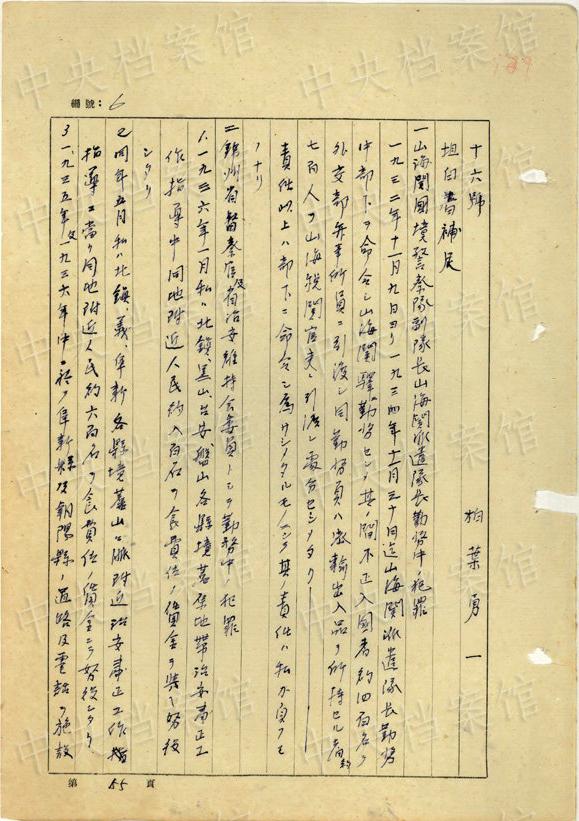 編號：6
十六號
柏葉勇一
坦白書補足
一山海関國境警察隊副隊長山海関派遣隊長勤務中ノ犯罪
一九三二年十一月九日ヨリ一九三四年十一月三十日迄山海関派遣隊長勤務
中部下ヲ命令シ山海関驛勤務セシメ其ノ間不正入國者約四百名ヲ
外交部弁事所員ニ引渡シ同勤務員ハ密輸出入品ヲ所持セル者約
七百人ヲ山海税関官吏ニ引渡シ處分セシメタリ
責任以上ハ部下ニ命令シ為サシメタルモノニシテ其ノ責任ハ私カ負フモ
ノナリ
二錦州省警察官及省治安維持会委員トシテ勤務中ノ犯罪
1.一九三六年一月私ハ北鎮、黒山、台安、盤山各縣境葦集地帯治安粛正工
作指導中同地附近人民約八百名ヲ食費位ノ賃金ヲ与ヘ努役
シタリ
2同年五月私ハ北鎮、義、阜新各縣境醫山山脈附近治安粛正工作指
指導ニ當リ同地附近人民約六百名ヲ食費位ノ賃金ニテ努役シタリ
3一九三五年及一九三六年中ニ於テ阜新縣及朝陽縣ノ道路及電話ノ施設
第 55 頁
中央档案馆